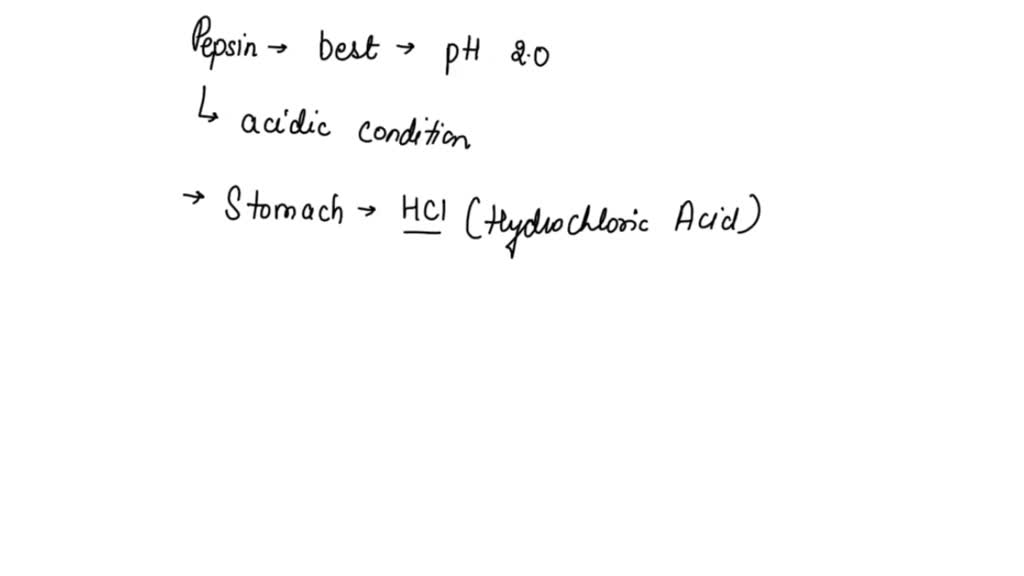 Pepsin → best → pH 2.0
↳ acidic condition
→ Stomach → HCl (Hydrochloric Acid)